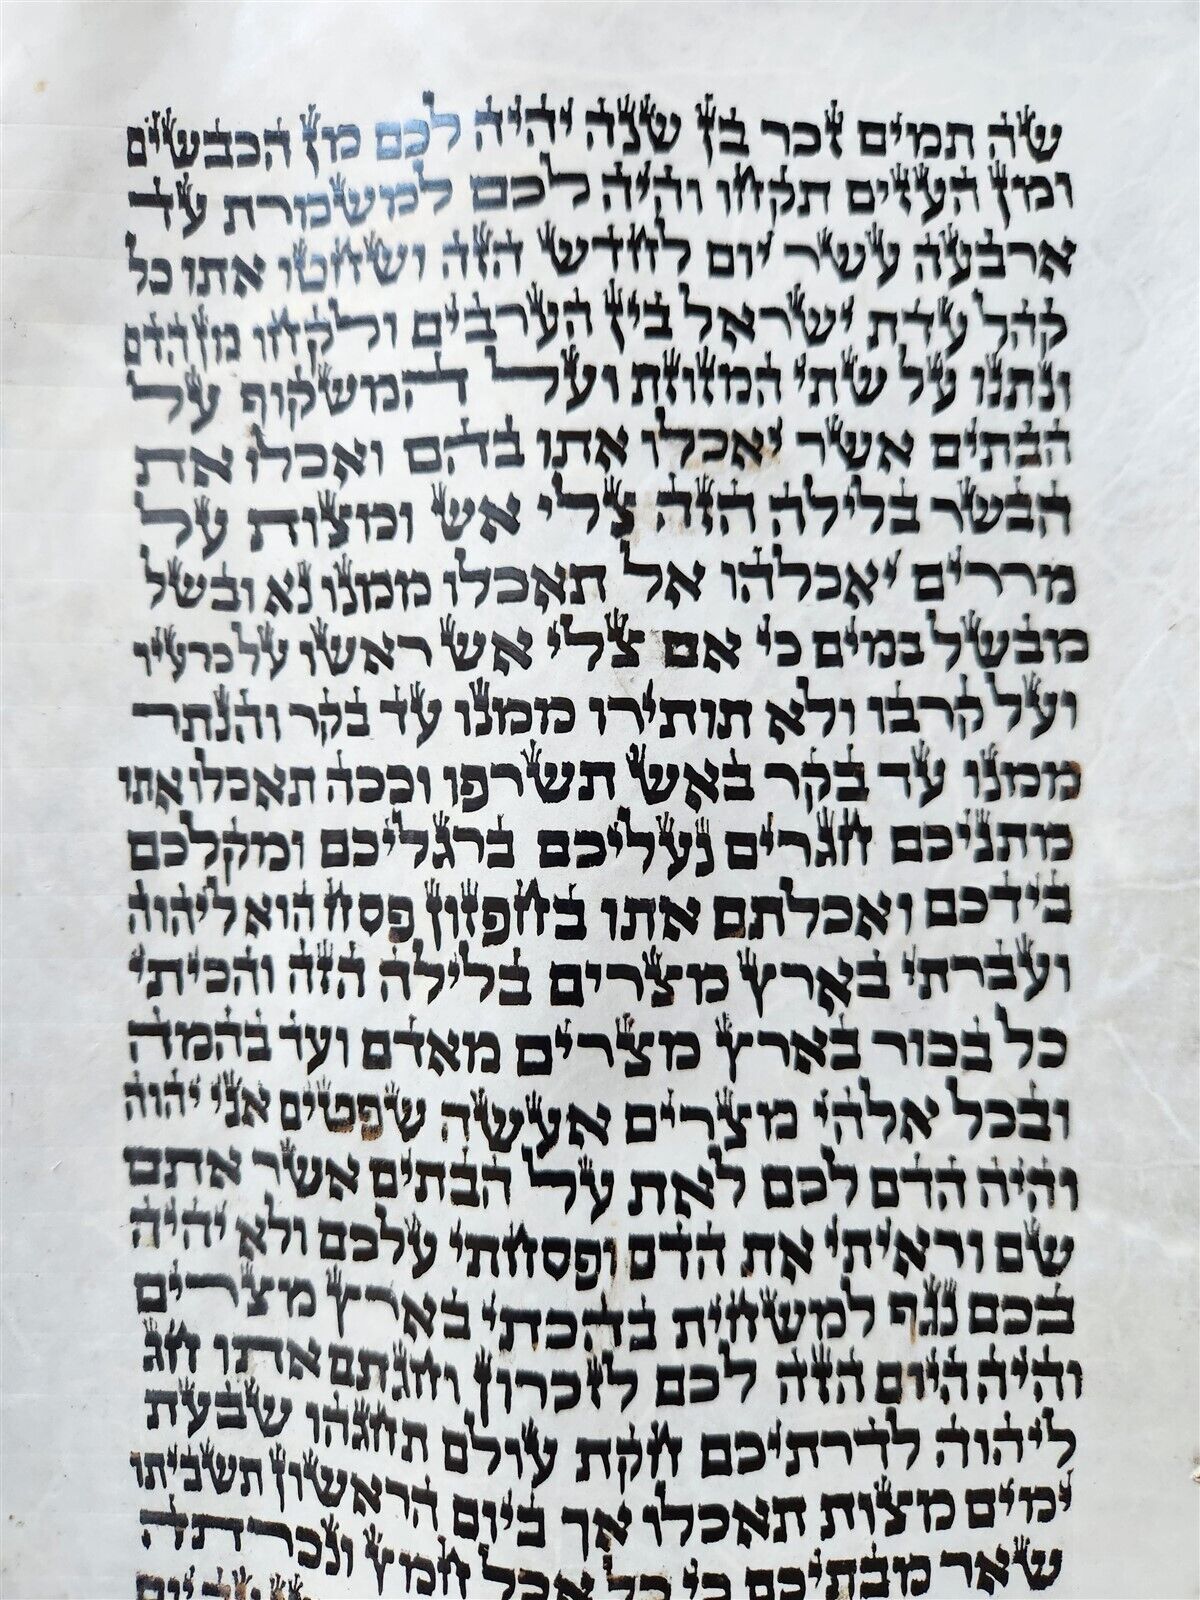 שה תמים זכר בן שנה יהיה לכם מן הכבשים
ומן העזים תקחו והיה לכם למשמרת עד
ארבעה עשר יום לחדש הזה ושחטו אתו כל
קהל עדת ישראל בין הערבים ולקחו מן הדם
ונתנו על שתי המזוזת ועל המשקוף על
הבתים אשר יאכלו אתו בהם ואכלו את
הבשר בלילה הזה צלי אש ומצות על
מררים יאכלהו אל תאכלו ממנו נא ובשל
מבשל במים כי אם צלי אש ראשו על כרעיו
ועל קרבו ולא תותירו ממנו עד בקר והנתר
ממנו עד בקר באש תשרפו וככה תאכלו אתו
מתניכם חגרים נעליכם ברגליכם ומקלכם
בידכם ואכלתם אתו בחפזון פסח הוא ליהוה
ועברתי בארץ מצרים בלילה הזה והכיתי
כל בכור בארץ מצרים מאדם ועד בהמה
ובכל אלהי מצרים אעשה שפטים אני יהוה
והיה הדם לכם לאת על הבתים אשר אתם
שם וראיתי את הדם ופסחתי עלכם ולא יהיה
בכם נגף למשחית בהכתי בארץ מצרים
והיה היום הזה לכם לזכרון וחגתם אתו חג
ליהוה לדרתיכם חקת עולם תחגהו שבעת
ימים מצות תאכלו אך ביום הראשון תשביתו
שאר מבתיכם כי כל אכל חמץ ונכרתה